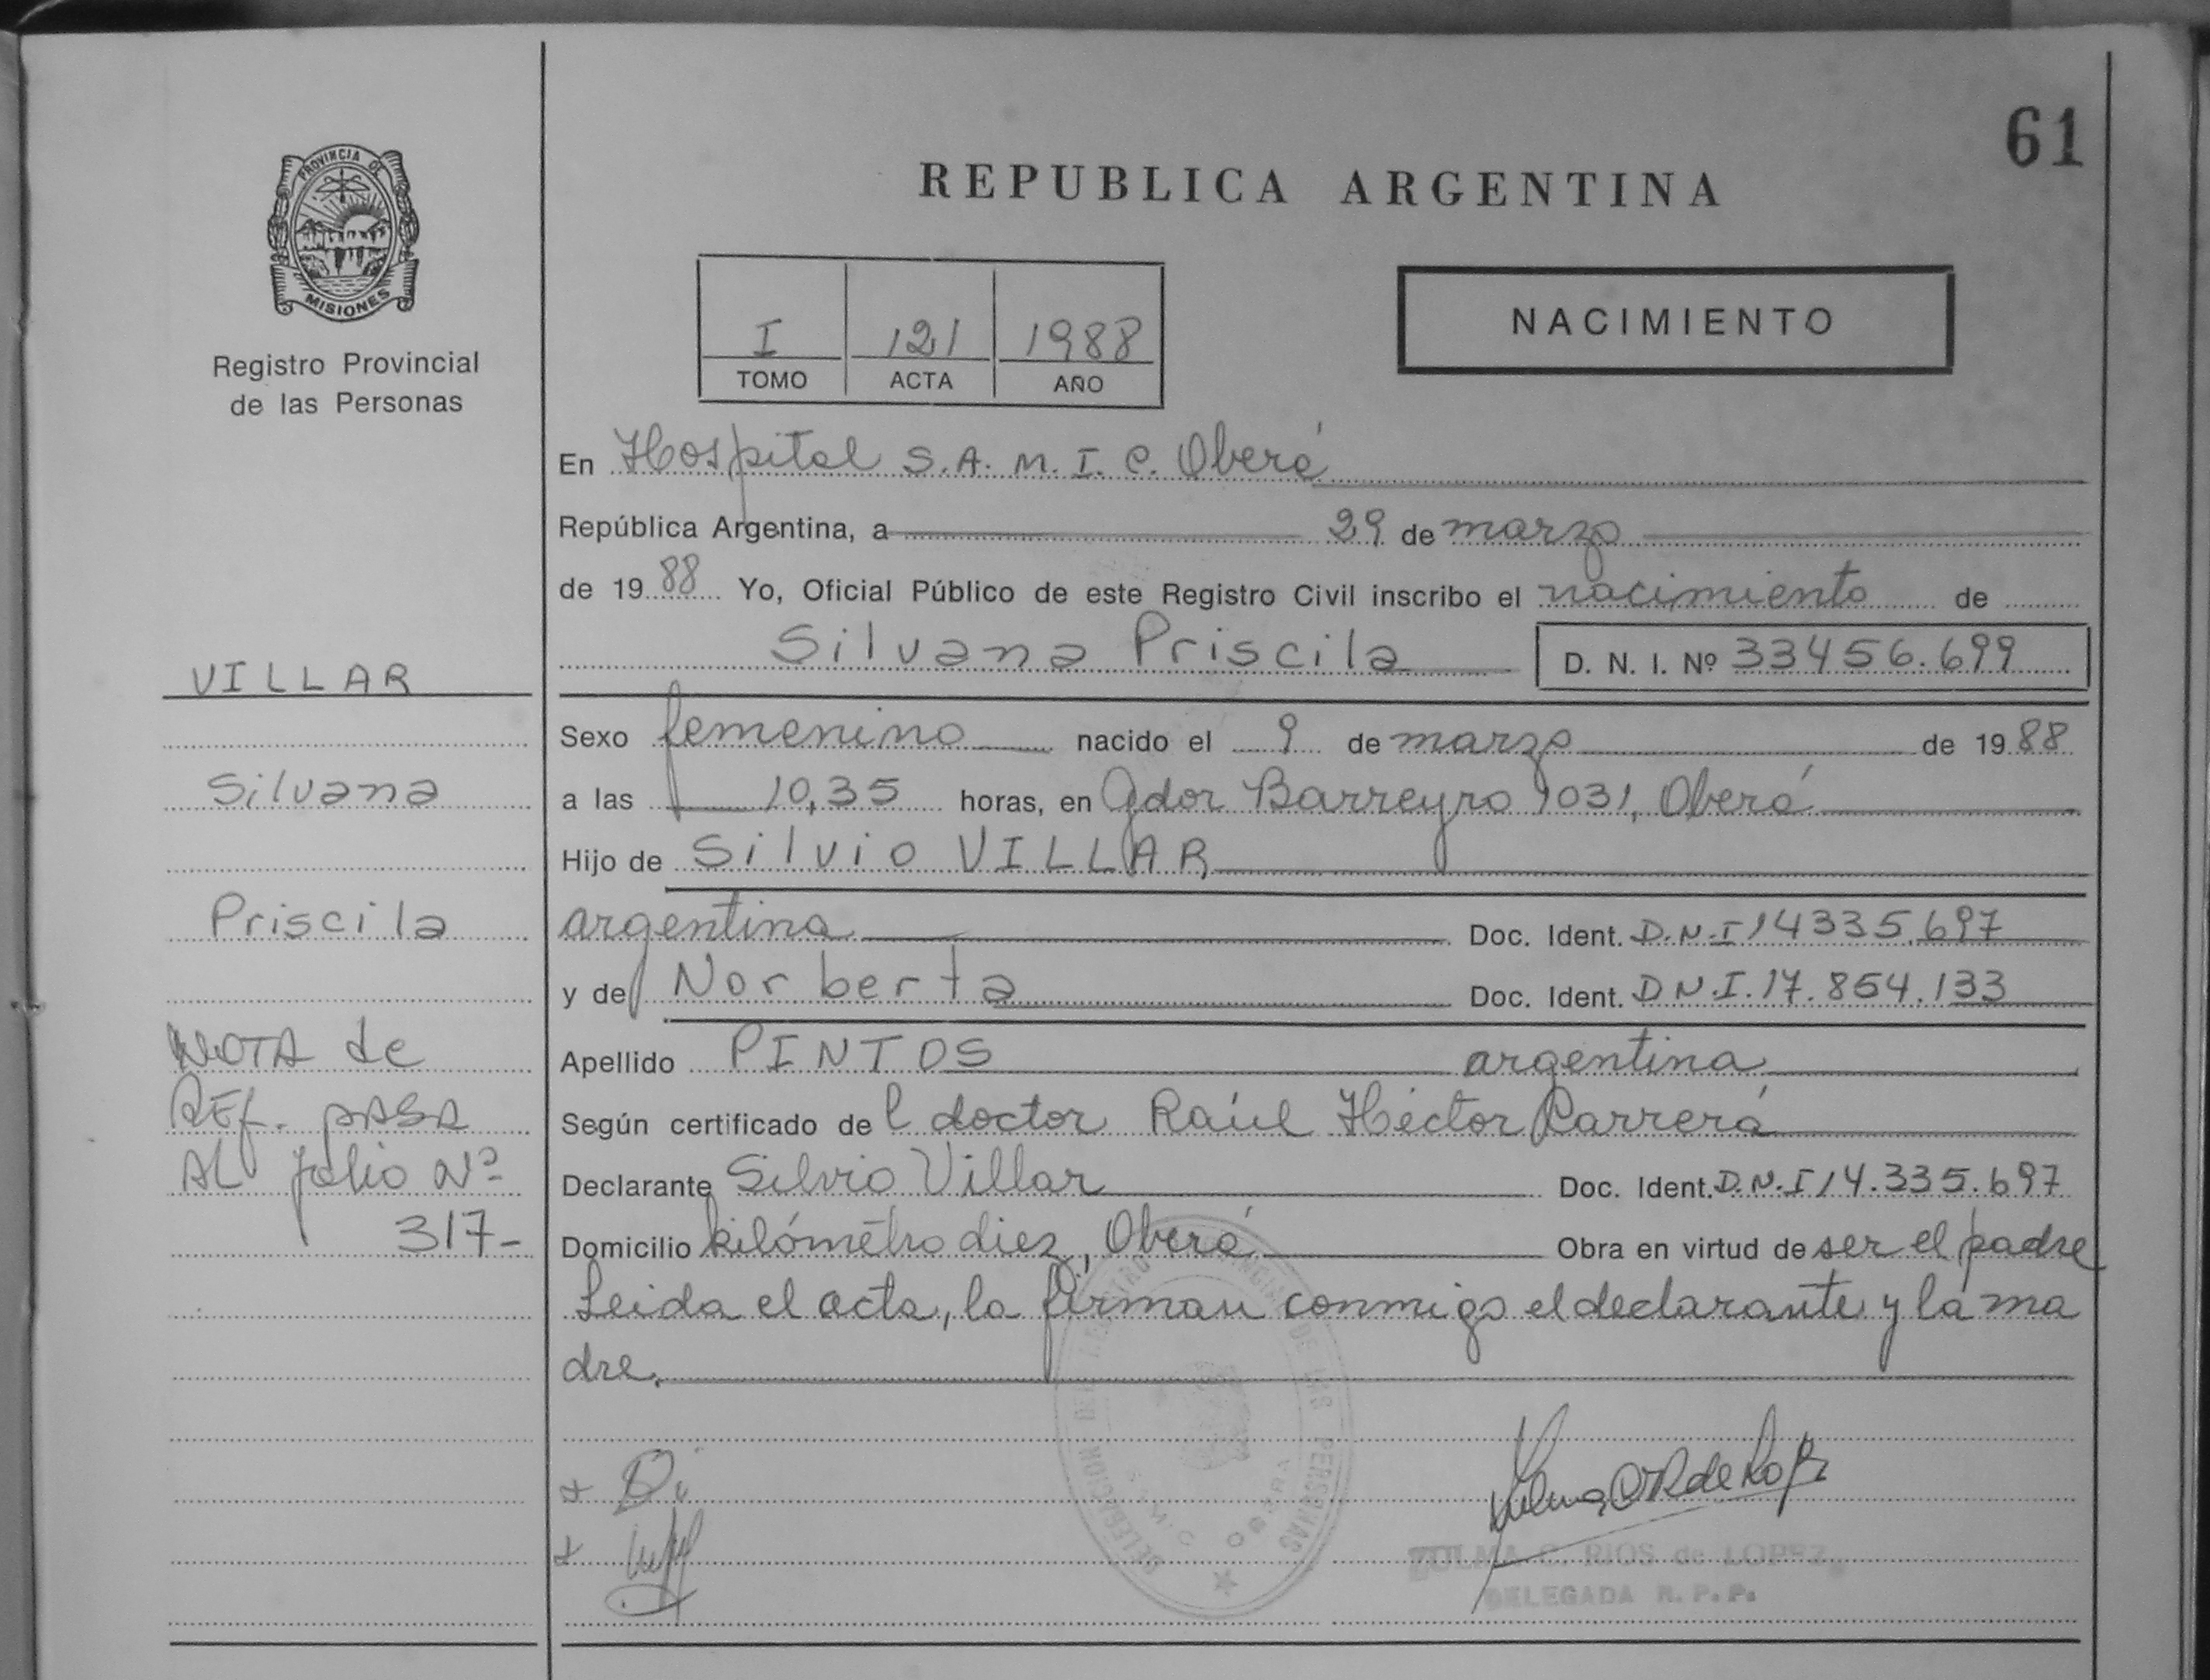 61
PROVINCIA DE
MISIONES
Registro Provincial
de las Personas
REPUBLICA ARGENTINA
I 121 1988
TOMO ACTA AÑO
NACIMIENTO
En Hospital S.A.M.I.C. Oberá
República Argentina, a 29 de marzo
de 19 88 Yo, Oficial Público de este Registro Civil inscribo el nacimiento de
Silvana Priscila D. N. I. Nº 33456.699
VILLAR
Silvana
Priscila
NOTA de
REf. PASA
AL folio Nº
317-
Sexo femenino nacido el 9 de marzo de 19 88
a las 10,35 horas, en Gdor Barreyro 1031, Oberá
Hijo de Silvio VILLAR
argentina Doc. Ident. D.N.I 14335.697
y de Norberta Doc. Ident. D N.I. 17.854.133
Apellido PINTOS argentina
Según certificado de l doctor Raúl Héctor Carrera
Declarante Silvio Villar Doc. Ident. D.N.I 14.335.697
Domicilio kilómetro diez, Oberá Obra en virtud de ser el padre
Leida el acta, la firman conmigo el declarante y la ma
dre.
DELEGACION DEL REGISTRO PROVINCIAL DE LAS PERSONAS
OBERA
ZULMA C. RIOS de LOPEZ
DELEGADA R. P. P.